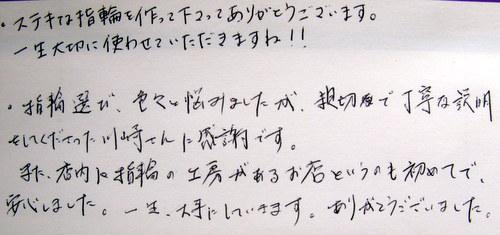 ・ステキな指輪を作って下さってありがとうございます。
一生大切に使わせていただきますね!!
・指輪選び、色々と悩みましたが、親切で丁寧な説明
をしてくださった川崎さんに感謝です。
また、店内に指輪の工房があるお店というのも初めてで、
安心しました。一生、大事にしていきます。ありがとうございました。